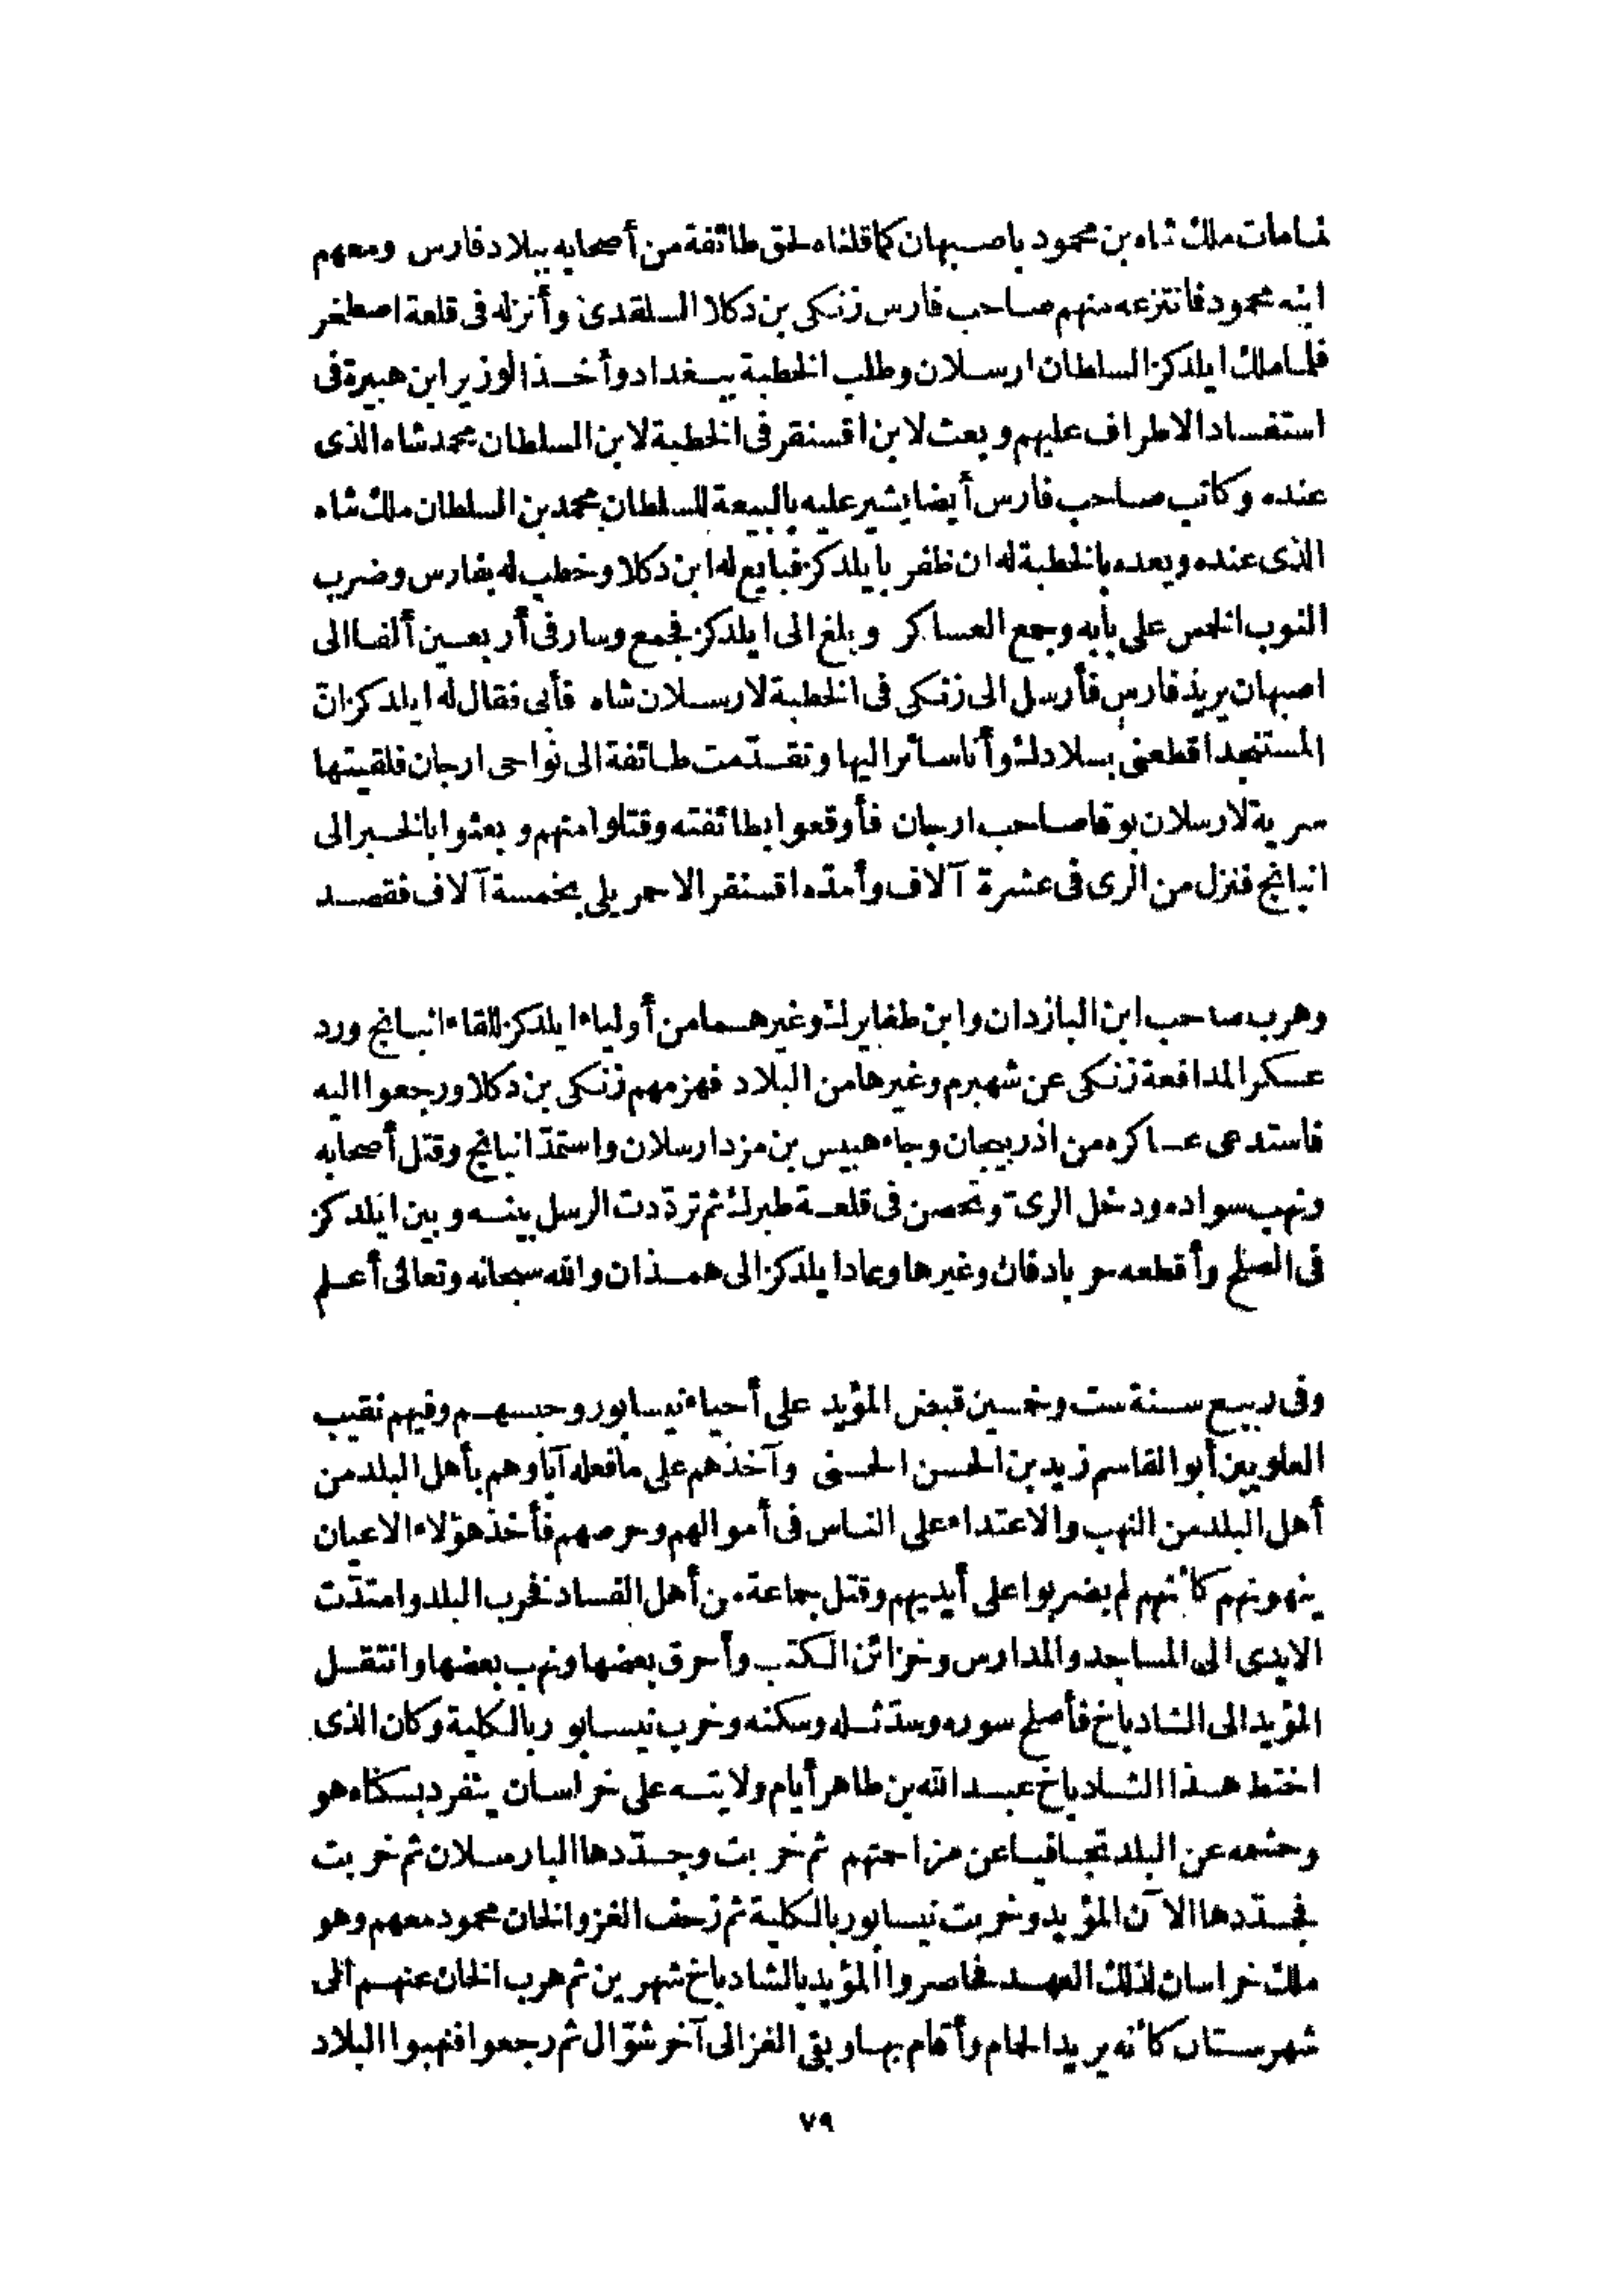 لما مات ملك شاه بن محمود باصبهان كما قلناه لحق طائفة من أصحابه ببلاد فارس ومعهم
ابنه محمود فانتزعه منهم صاحب فارس زنكى بن دكلا السلقدى وأنزله فى قلعة اصطخر
فلما ملك ايلدكز السلطان ارسلان وطلب الخطبة ببغداد وأخذ الوزير ابن هبيرة فى
استفساد الاطراف عليهم وبعث لابن اقسنقر فى الخطبة لابن السلطان محمد شاه الذى
عنده وكاتب صاحب فارس أيضا يشير عليه بالبيعة للسلطان محمد بن السلطان ملك شاه
الذى عنده ويعده بالخطبة له ان ظفر بايلدكز فبايع له ابن دكلا وخطب له بفارس وضرب
النوب الخمس على بابه وجمع العساكر وبلغ الى ايلدكز فجمع وسار فى أربعين ألفا الى
اصبهان يريد فارس فأرسل الى زنكى فى الخطبة لارسلان شاه فأبى فقال له ايلدكز انّ
المستنجد اقطعنى بلادك وأنا سائر اليها وتقدّمت طائفة الى نواحى ارجان فلقيتها
سرية لارسلان بوقا صاحب ارجان فأوقعوا بطائفته وقتلوا منهم وبعثوا بالخبر الى
انبانج فنزل من الرى فى عشرة آلاف وأمدّه اقسنقر الاحمريلى بخمسة آلاف فقصد
وهرب صاحب ابن البازدان وابن طغايرك وغيرهما من أولياء ايلدكز للقاء انبانج ورد
عسكر المدافعة زنكى عن شهبرم وغيرها من البلاد فهزمهم زنكى بن دكلا ورجعوا اليه
فاستدعى عساكره من اذربيجان وجاء هبيس بن مزدارسلان واستمدّ انبانج وقتل أصحابه
ونهب سواده ودخل الرىّ وتحصن فى قلعة طبرك ثم تردّدت الرسل بينه وبين ايلدكز
فى الصلح وأقطعه حربادقان وغيرها وعاد ايلدكز الى همذان والله سبحانه وتعالى أعلم
وفى ربيع سنة ست وخمسين قبض المؤيد على أحياء نيسابور وحبسهم وفيهم نقيب
العلويين أبو القاسم زيد بن الحسن الحسنى وآخذهم على ما فعله آباؤهم بأهل البلد من
أهل البلد من النهب والاعتداء على الناس فى أموالهم وحرصهم فأخذ هؤلاء الاعيان
ينهونهم كأنهم لم يضربوا على أيديهم وقتل جماعة من أهل الفساد فخرب البلد وامتدّت
الايدى الى المساجد والمدارس وخزائن الكتب وأحرق بعضها ونهب بعضها وانتقل
المؤيد الى الشادباخ فأصلح سوره وسدّ ثلمه وسكنه وخرب نيسابور بالكلية وكان الذى
اختط هذا الشادباخ عبد الله بن طاهر أيام ولايته على خراسان ينفرد بسكناه هو
وحشمه عن البلد تجافيا عن مزاحمتهم ثم خربت وجدّدها البارسلان ثم خربت
فجدّدها الآن المؤيد وخربت نيسابور بالكلية ثم زحف الغز والخان محمود معهم وهو
ملك خراسان لذلك العهد فحاصروا المؤيد بالشادباخ شهرين ثم هرب الخان عنهم الى
شهرستان كأنه يريد الحمام وأقام بها وبقى الغز الى آخر شوّال ثم رجعوا فنهبوا البلاد
٧٩